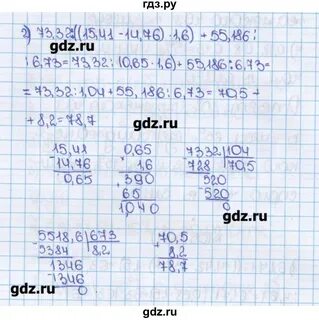 гдз.ру
2) 73,32:((15,41 - 14,76) · 1,6) + 55,186 :
: 6,73 = 73,32 : (0,65 · 1,6) + 55,186 : 6,73 =
= 73,32 : 1,04 + 55,186 : 6,73 = 70,5 +
+ 8,2 = 78,7
15,41
- 14,76
0,65
0,65
× 1,6
390
65
1,040
7332 | 104
- 728 | 70,5
520
- 520
0
5518,6 | 673
- 5384 | 8,2
1346
- 1346
0
70,5
+ 8,2
78,7
gdz.ru
gdz.ru
gdz.ru
gdz.ru
gdz.ru
gdz.ru
gdz.ru